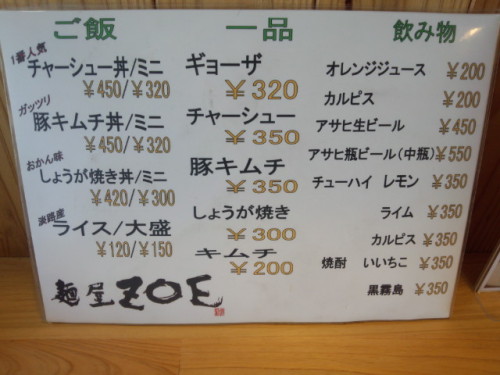 ご飯
1番人気
チャーシュー丼/ミニ
¥450/¥320
ガッツリ
豚キムチ丼/ミニ
¥450/¥320
おかん味
しょうが焼き丼/ミニ
¥420/¥300
淡路産
ライス/大盛
¥120/¥150
麺屋ZOE
一品
ギョーザ
¥320
チャーシュー
¥350
豚キムチ
¥350
しょうが焼き
¥300
キムチ
¥200
飲み物
オレンジジュース ¥200
カルピス ¥200
アサヒ生ビール ¥450
アサヒ瓶ビール(中瓶) ¥550
チューハイ レモン ¥350
ライム ¥350
カルピス ¥350
焼酎 いいちこ ¥350
黒霧島 ¥350